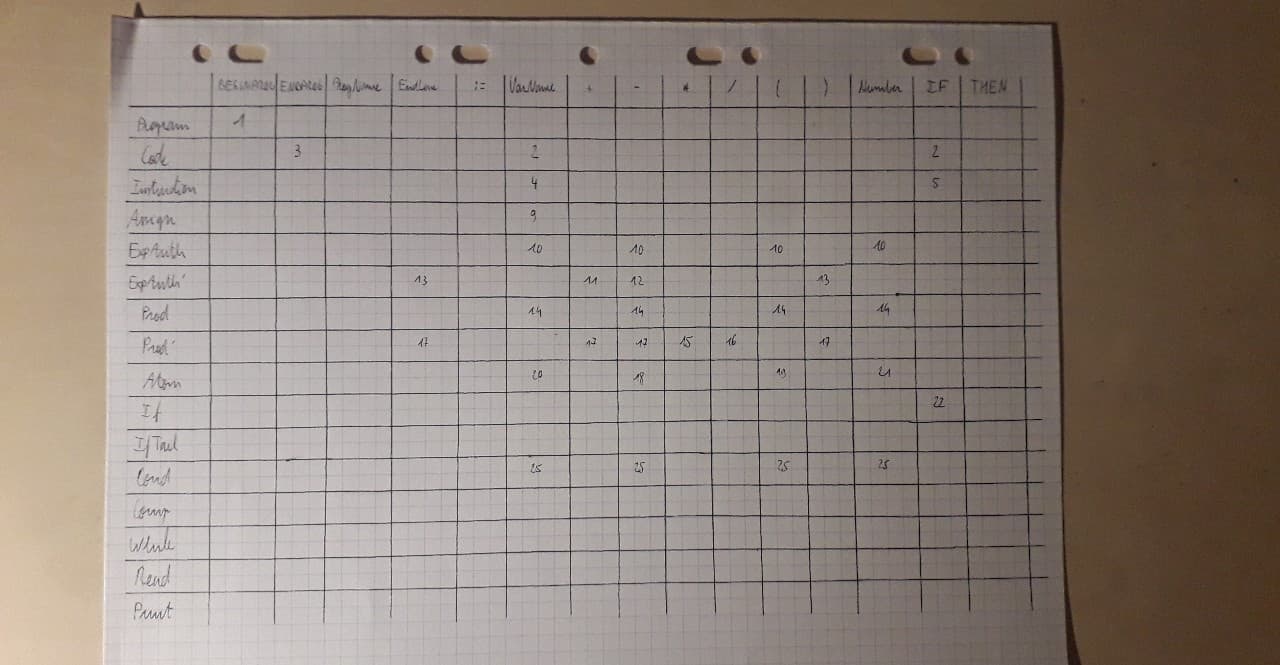 BEGINPROG ENDPROG ProgName EndLine := VarName + - * / ( ) Number IF THEN
Program 1
Code 3 2 2
Instruction 4 5
Assign 9
ExpArith 10 10 10 10
ExpArith' 13 11 12 13
Prod 14 14 14 14
Prod' 17 17 17 15 16 17
Atom 20 18 19 21
If 22
IfTail
Cond 25 25 25 25
Comp
While
Read
Print